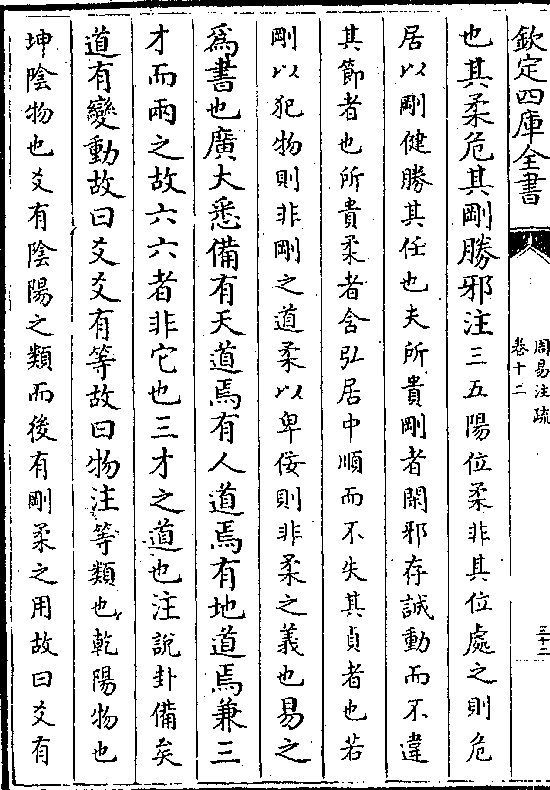 欽定四庫全書
周易注疏
卷十二
三十二
也其柔危其剛勝邪注三五陽位柔非其位處之則危
居以剛健勝其任也夫所貴剛者閑邪存誠動而不違
其節者也所貴柔者含弘居中順而不失其貞者也若
剛以犯物則非剛之道柔以卑佞則非柔之義也易之
為書也廣大悉備有天道焉有人道焉有地道焉兼三
才而兩之故六六者非它也三才之道也注說卦備矣
道有變動故曰爻爻有等故曰物注等類也乾陽物也
坤陰物也爻有陰陽之類而後有剛柔之用故曰爻有